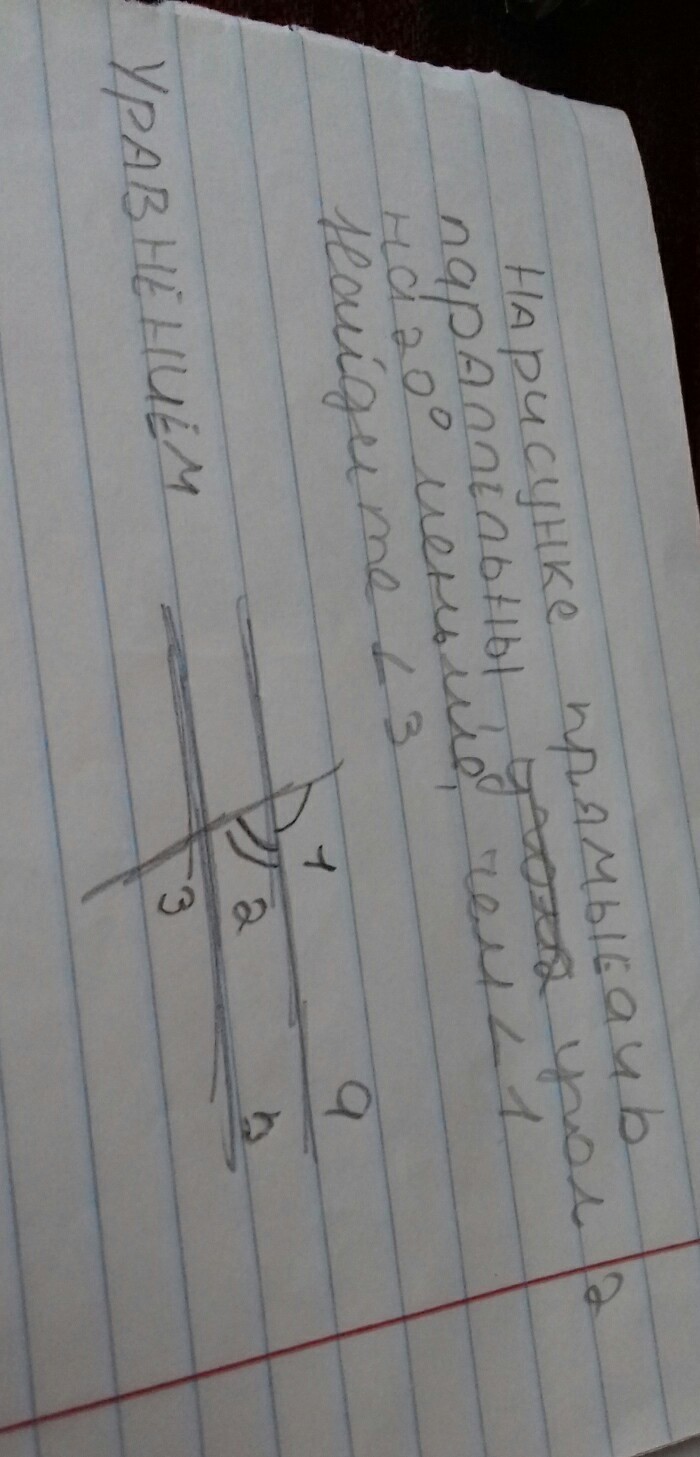 НА рисунке прямые а и b
параллельны угол 2
на 20° меньше, чем ∠ 1
Найдите ∠ 3
УРАВНЕНИЕМ
1
a
2
b
3